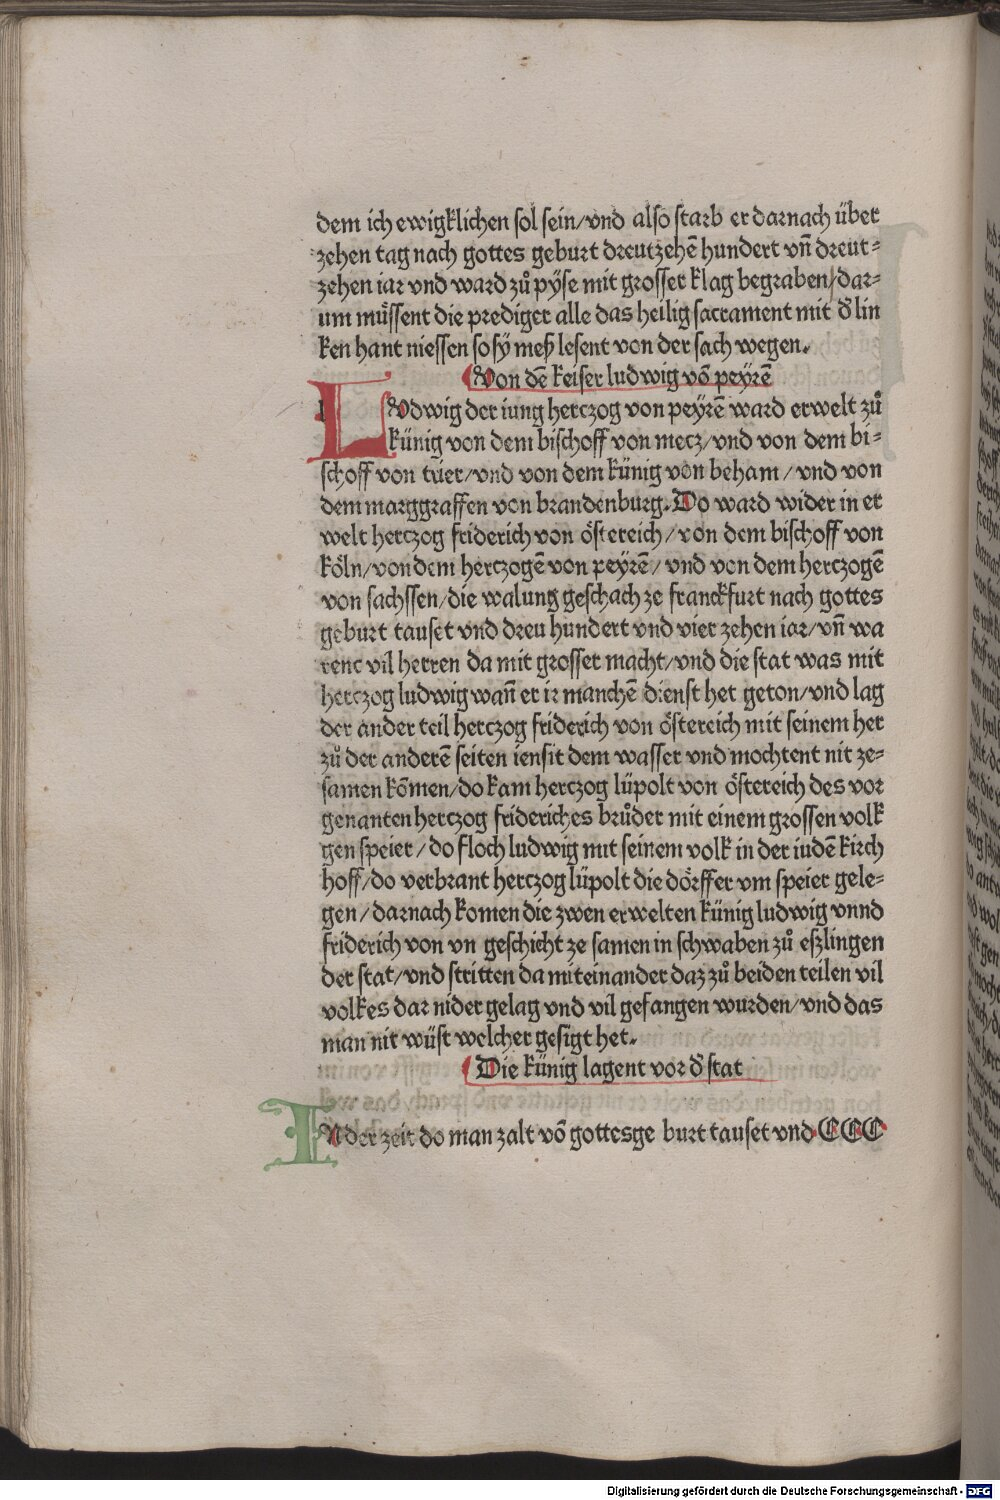 dem ich ewigklichen sol sein/vnd also starb er darnach über
zehen tag nach gottes geburt dreutzehē hundert vn̄ dreut⸗
zehen iar vnd ward zů pyse mit grosser klag begraben/dar⸗
um müssent die prediger alle das heilig sacrament mit d̕ lin
ken hant niessen so sÿ meß lesent von der sach wegen.
Von dē keiser ludwig vō peÿrē
LVdwig der iung herczog von peÿrē ward erwelt zů
künig von dem bischoff von mecz/vnd von dem bi⸗
schoff von trier/vnd von dem künig von beham/vnd von
dem marggraffen von brandenburg. Do ward wider in er
welt herczog friderich von östereich/von dem bischoff von
köln/von dem herczogē von peÿrē/vnd von dem herczogē
von sachssen/die walung geschach ze franckfurt nach gottes
geburt tauset vnd dreu hundert vnd vier zehen iar/vn̄ wa
rent vil herren da mit grosser macht/vnd die stat was mit
herczog ludwig wan̄ er ir manchē dienst het geton/vnd lag
der ander teil herczog friderich von östereich mit seinem her
zů der anderē seiten iensit dem wasser vnd mochtent nit ze⸗
samen kōmen/do kam herczog lüpolt von östereich des vor
genanten herczog frideriches brůder mit einem grossen volk
gen speier/do floch ludwig mit seinem volk in der iudē kirch
hoff/do verbrant herczog lüpolt die dörffer vm speier gele⸗
gen/darnach komen die zwen erwelten künig ludwig vnnd
friderich von vn geschicht ze samen in schwaben zů eszlingen
der stat/vnd stritten da miteinander daz zů beiden teilen vil
volkes dar nider gelag vnd vil gefangen wurden/vnd das
man nit wüst welcher gesigt het.
Die künig lagent vor d̕ stat
IN der zeit do man zalt vō gottesge burt tauset vnd CCC
Digitalisierung gefördert durch die Deutsche Forschungsgemeinschaft - DFG